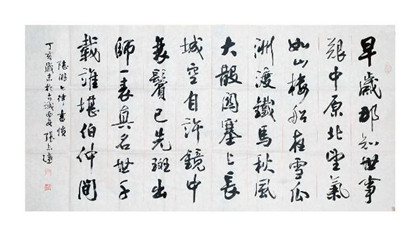 早歲那知世事
艱中原北望氣
如山樓船夜雪瓜
洲渡鐵馬秋風
大散關塞上長
城空自許鏡中
衰鬢已先斑出
師一表真名世千
載誰堪伯仲間
陸游七律書憤
丁亥歲末於古城